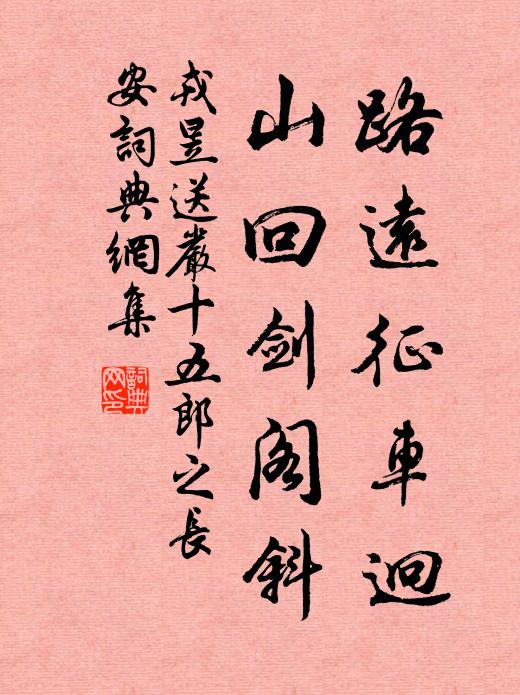 路遠征車迥
山回剑阁斜
戎昱送嚴十五郎之長
安詞典網集
詞典
网印